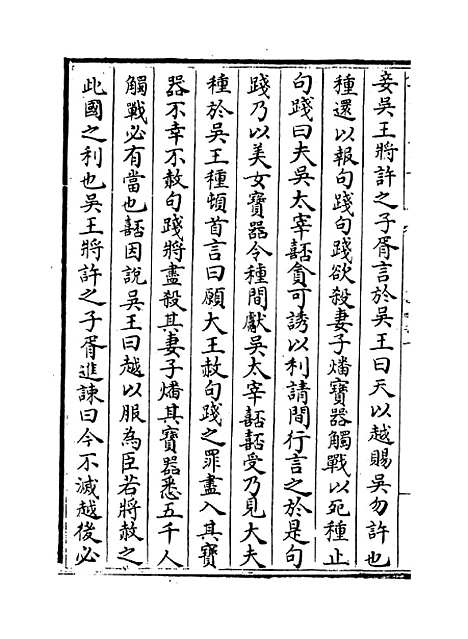 妾吳王將許之子胥言於吳王曰天以越賜吳勿許也
種還以報句踐句踐欲殺妻子燔寶器觸戰以死種止
句踐曰夫吳太宰嚭貪可誘以利請間行言之於是句
踐乃以美女寶器令種間獻吳太宰嚭嚭受乃見大夫
種於吳王種頓首言曰願大王赦句踐之罪盡入其寶
器不幸不赦句踐將盡殺其妻子燔其寶器悉五千人
觸戰必有當也嚭因說吳王曰越以服為臣若將赦之
此國之利也吳王將許之子胥進諫曰今不滅越後必